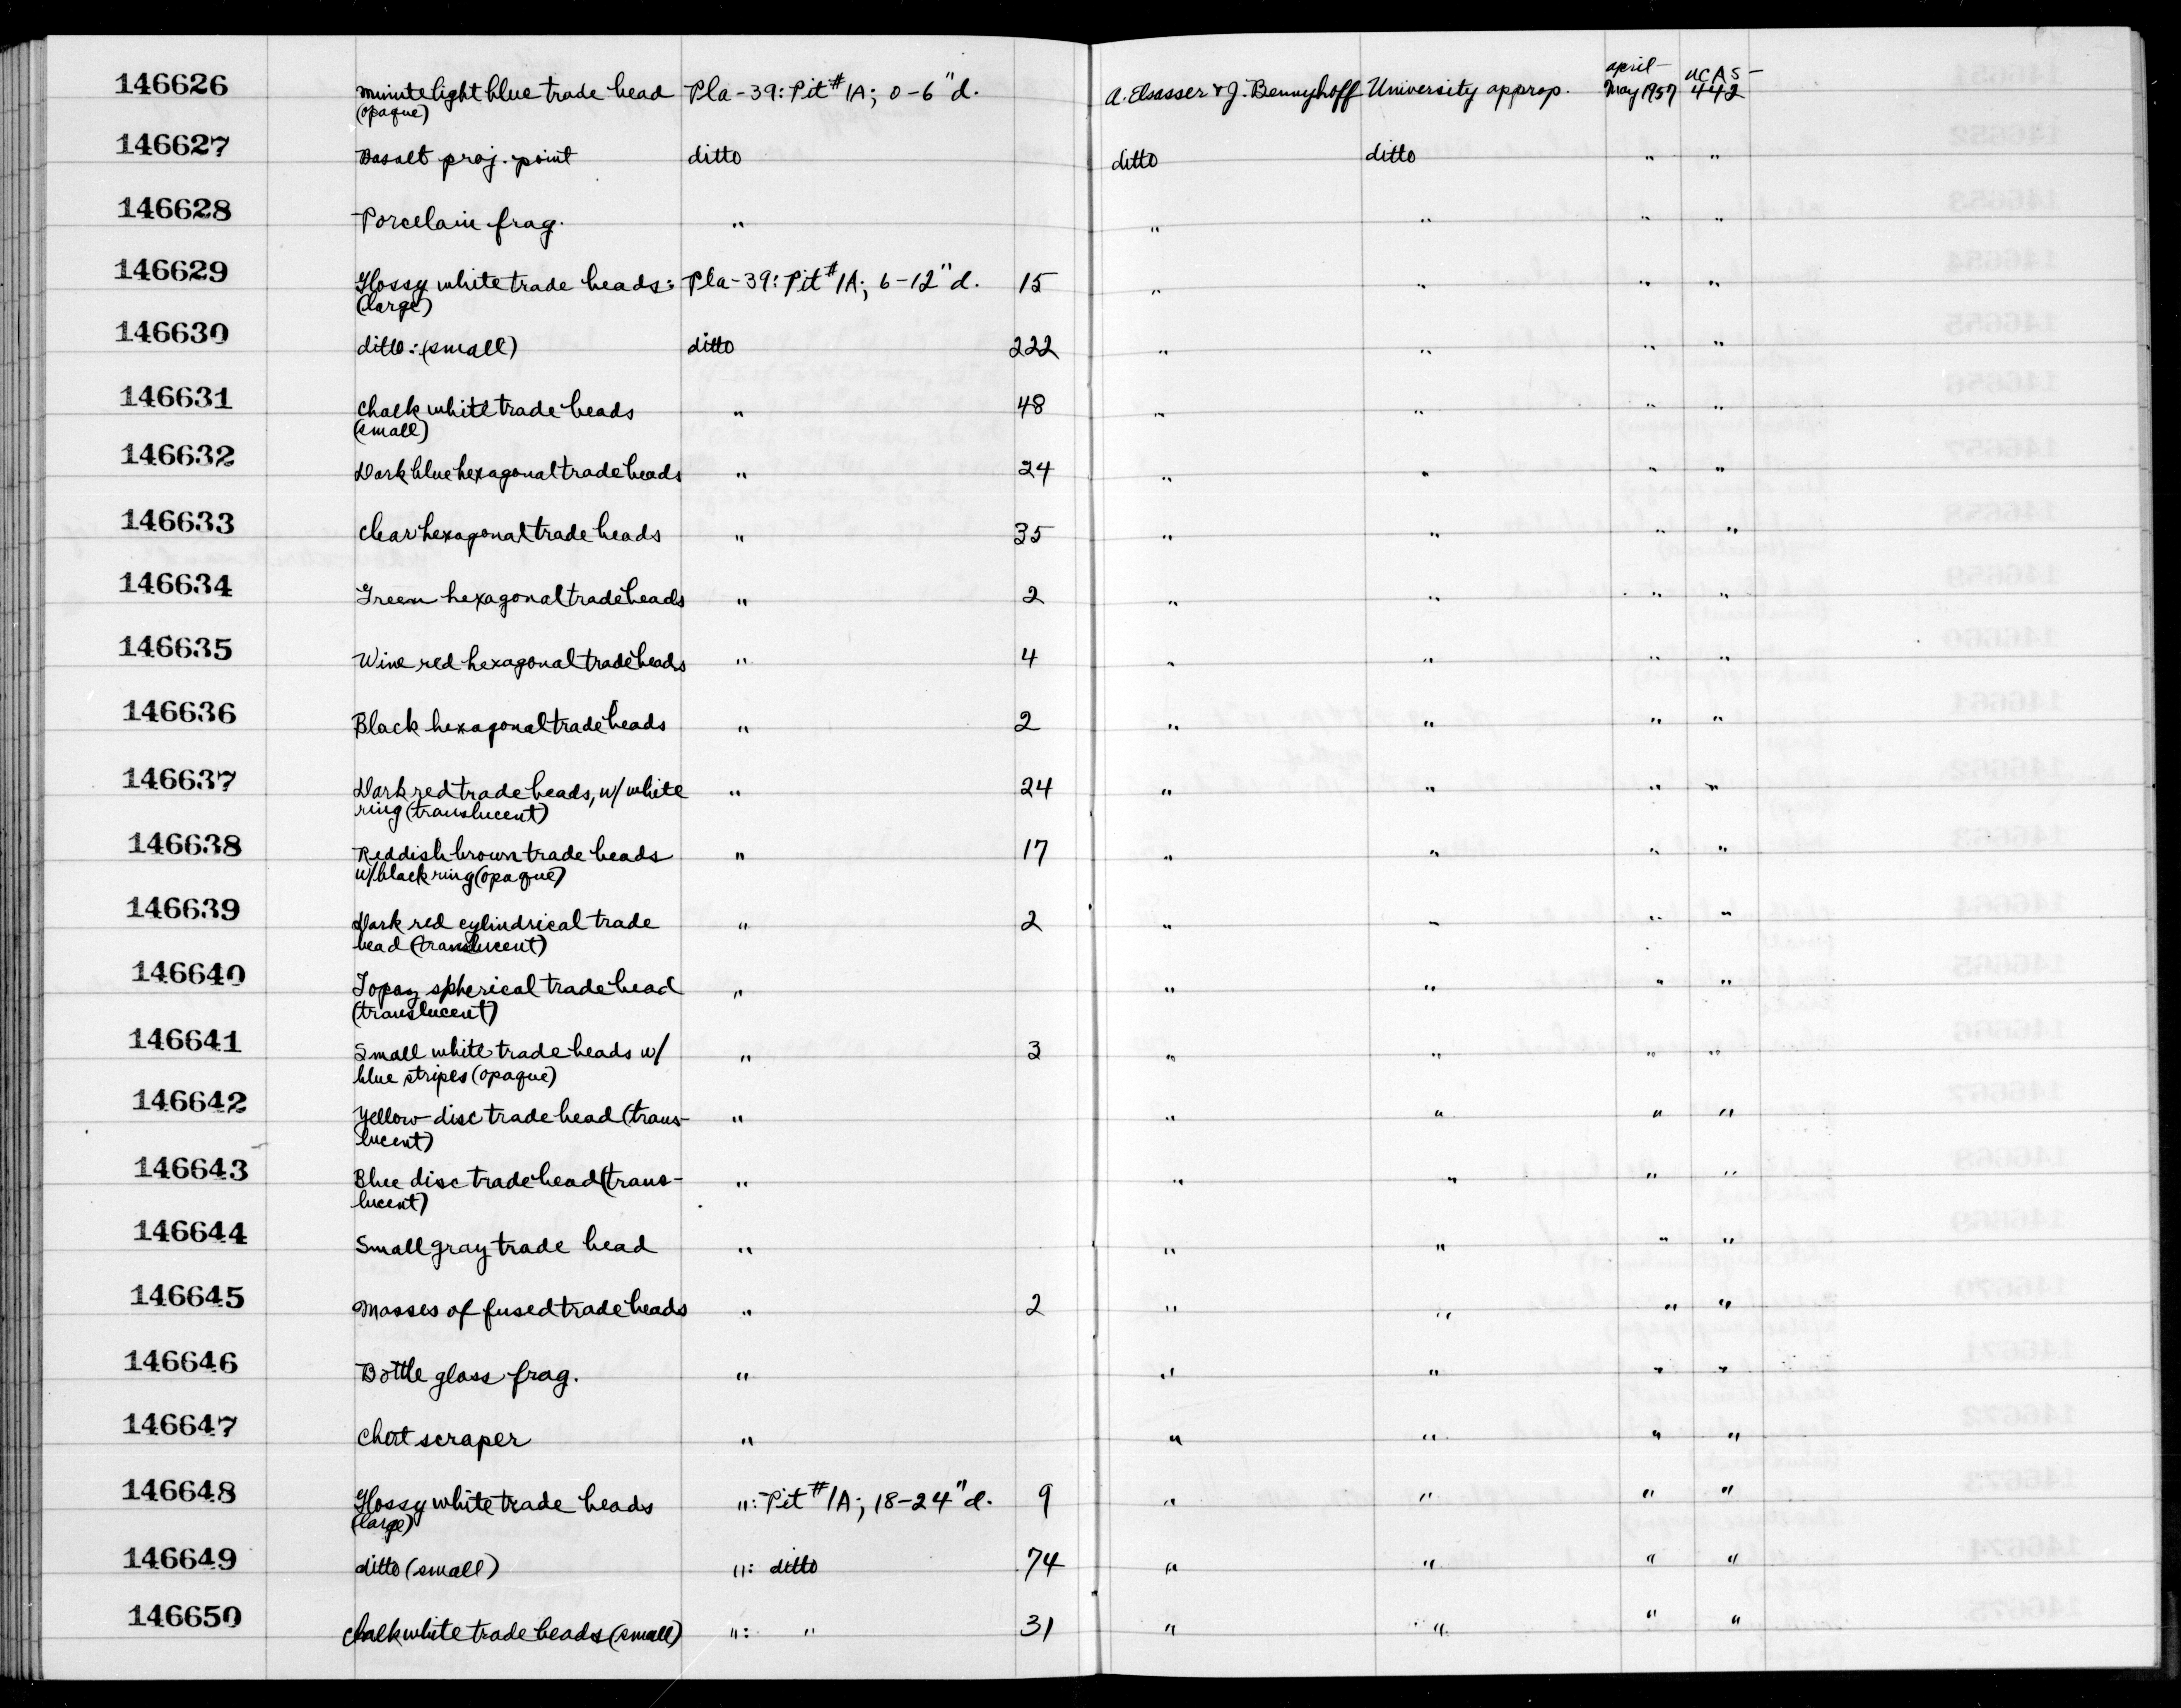 146626 Minute light blue trade bead Pla-39: Pit #1A; 0-6" d. A. Elsasser & J. Bennyhoff University approp. April- May 1957 UCAS- 442
(opaque)
146627 Basalt proj. point ditto ditto ditto " "
146628 Porcelain frag. " " " " "
146629 Glossy white trade beads: Pla-39: Pit #1A; 6-12" d. 15 " " " "
(large)
146630 ditto: (small) ditto 222 " " " "
146631 Chalk white trade beads " 48 " " " "
(small)
146632 Dark blue hexagonal trade beads " 24 " " " "
146633 Clear hexagonal trade beads " 35 " " " "
146634 Green hexagonal trade beads " 2 " " " "
146635 Wine red hexagonal trade beads " 4 " " " "
146636 Black hexagonal trade beads " 2 " " " "
146637 Dark red trade beads, w/ white " 24 " " " "
ring (translucent)
146638 Reddish brown trade beads " 17 " " " "
w/ black ring (opaque)
146639 Dark red cylindrical trade " 2 " " " "
bead (translucent)
146640 Topaz spherical trade bead " " " " "
(translucent)
146641 Small white trade beads w/ " 3 " " " "
blue stripes (opaque)
146642 Yellow disc trade bead (trans- " " " " "
lucent)
146643 Blue disc trade bead (trans- " " " " "
lucent)
146644 Small gray trade bead " " " " "
146645 Masses of fused trade beads " 2 " " " "
146646 Bottle glass frag. " " " " "
146647 Chert scraper " " " " "
146648 Glossy white trade beads ": Pit #1A; 18-24" d. 9 " " " "
(large)
146649 ditto (small) ": ditto 74 " " " "
146650 Chalk white trade beads (small) ": " 31 " " " "